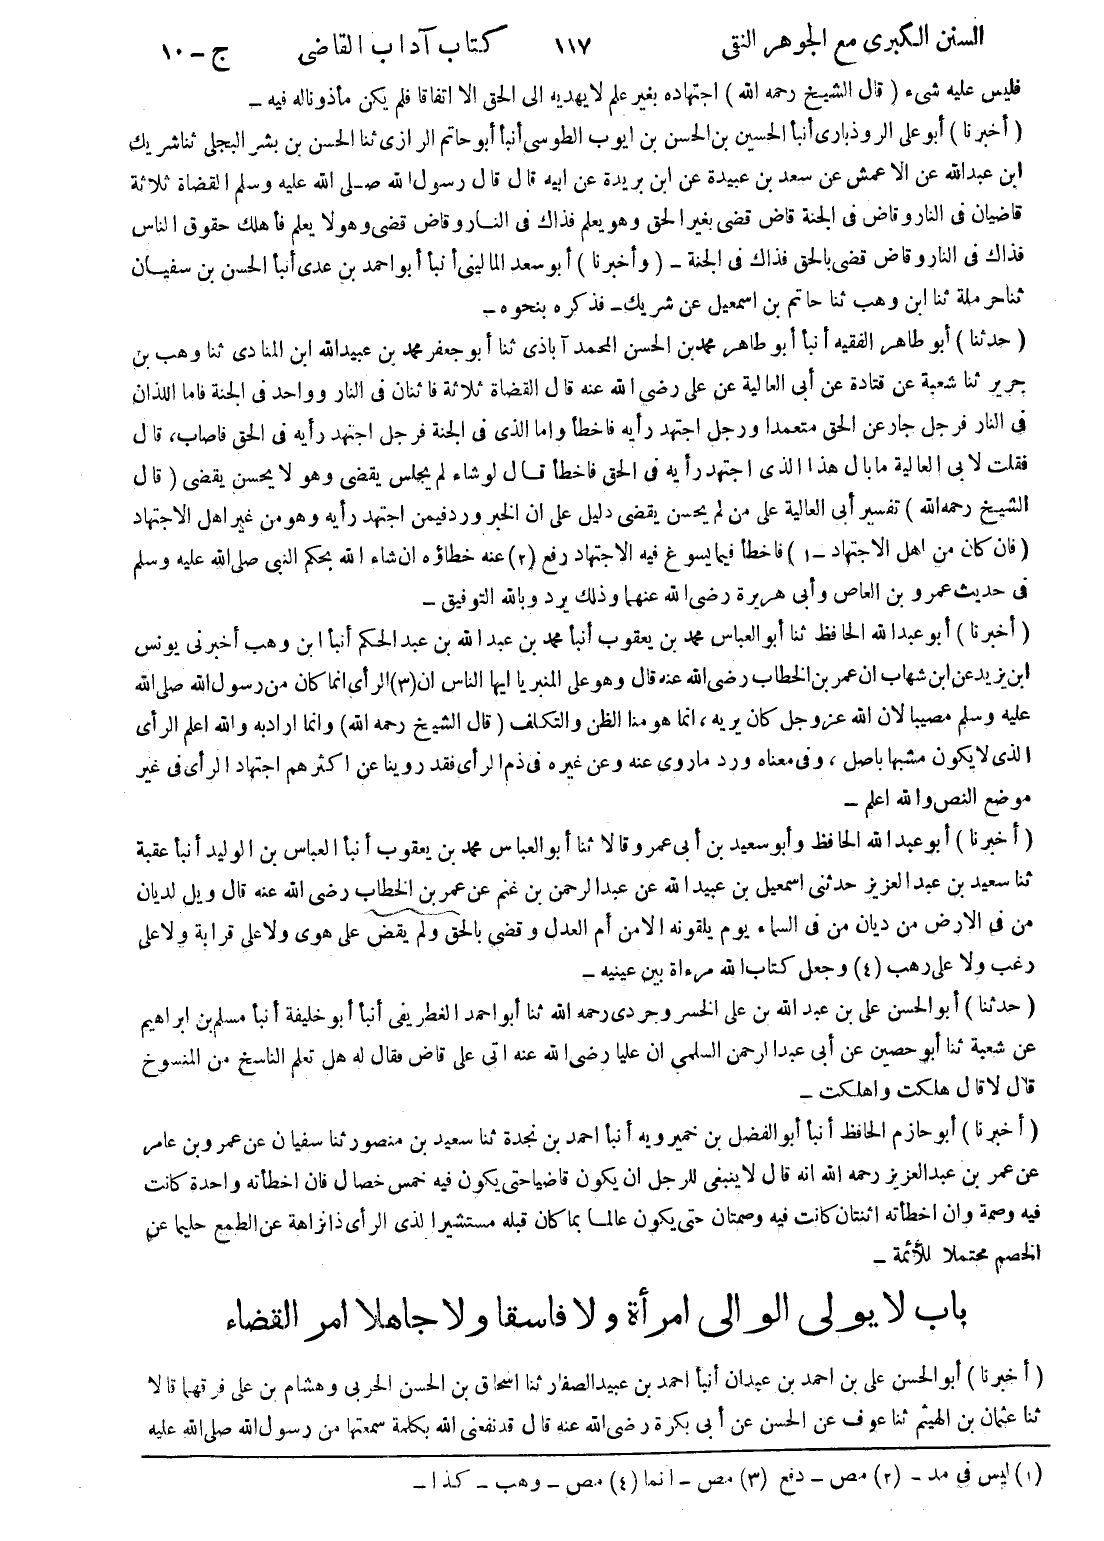 السنن الكبرى مع الجوهر النقى ١١٧ كتاب آداب القاضى ج - ١٠
فليس عليه شىء ( قال الشيخ رحمه الله ) اجتهاده بغير علم لا يهديه الى الحق الا اتفاقا فلم يكن مأذوناله فيه -
( أخبرنا ) أبو على الروذبارى أنبأ الحسين بن الحسن بن ايوب الطوسى أنبأ أبو حاتم الرازى ثنا الحسن بن بشر البجلى ثنا شريك
ابن عبدالله عن الاعمش عن سعد بن عبيدة عن ابن بريدة عن ابيه قال قال رسول الله صلى الله عليه وسلم القضاة ثلاثة
قاضيان فى النار وقاض فى الجنة قاض قضى بغير الحق وهو يعلم فذاك فى النار وقاض قضى وهو لا يعلم فأهلك حقوق الناس
فذاك فى النار وقاض قضى بالحق فذاك فى الجنة - ( وأخبرنا ) أبو سعد المالينى أنبأ أبو احمد بن عدى أنبأ الحسن بن سفيان
ثنا حرملة ثنا ابن وهب ثنا حاتم بن اسمعيل عن شريك - فذكره بنحوه -
( حدثنا ) أبو طاهر الفقيه أنبأ أبو طاهر محمد بن الحسن المحمد آباذى ثنا أبو جعفر محمد بن عبيدالله ابن المنادى ثنا وهب بن
جرير ثنا شعبة عن قتادة عن أبى العالية عن على رضى الله عنه قال القضاة ثلاثة فاثنان فى النار وواحد فى الجنة فاما اللذان
فى النار فرجل جار عن الحق متعمدا ورجل اجتهد رأيه فاخطأ واما الذى فى الجنة فرجل اجتهد رأيه فى الحق فاصاب، قال
فقلت لابى العالية ما بال هذا الذى اجتهد رأيه فى الحق فاخطأ قال لو شاء لم يجلس يقضى وهو لا يحسن يقضى ( قال
الشيخ رحمه الله ) تفسير أبى العالية على من لم يحسن يقضى دليل على ان الخبر ورد فيمن اجتهد رأيه وهو من غير اهل الاجتهاد
( فان كان من اهل الاجتهاد -١ ) فاخطأ فيما يسوغ فيه الاجتهاد رفع (٢) عنه خطاؤه ان شاء الله بحكم النبى صلى الله عليه وسلم
فى حديث عمرو بن العاص وأبى هريرة رضى الله عنهما وذلك يرد وبالله التوفيق -
( أخبرنا ) أبو عبدالله الحافظ ثنا أبو العباس محمد بن يعقوب أنبأ محمد بن عبد الله بن عبد الحكم أنبأ ابن وهب أخبرنى يونس
ابن يزيد عن ابن شهاب ان عمر بن الخطاب رضى الله عنه قال وهو على المنبر يا ايها الناس ان (٣) الرأى انما كان من رسول الله صلى الله
عليه وسلم مصيبا لان الله عز وجل كان يريه ، انما هو منا الظن والتكلف ( قال الشيخ رحمه الله ) وانما اراد به والله اعلم الرأى
الذى لا يكون مشبها باصل ، وفى معناه ورد ما روى عنه وعن غيره فى ذم الرأى فقد روينا عن اكثرهم اجتهاد الرأى فى غير
موضع النص والله اعلم -
( أخبرنا ) أبو عبد الله الحافظ وأبو سعيد بن أبى عمرو قالا ثنا أبو العباس محمد بن يعقوب أنبأ العباس بن الوليد أنبأ عقبة
ثنا سعيد بن عبد العزيز حدثنى اسمعيل بن عبيد الله عن عبد الرحمن بن غنم عن عمر بن الخطاب رضى الله عنه قال ويل لديان
من فى الارض من ديان من فى السماء يوم يلقونه الا من أم العدل وقضى بالحق ولم يقض على هوى ولا على قرابة ولا على
رغب ولا على رهب (٤) وجعل كتاب الله مرءاة بين عينيه -
( حدثنا ) أبو الحسن على بن عبد الله بن على الخسروجردى رحمه الله ثنا أبو احمد الغطريفى أنبأ أبو خليفة أنبأ مسلم بن ابراهيم
عن شعبة ثنا أبو حصين عن أبى عبد الرحمن السلمى ان عليا رضى الله عنه اتى على قاض فقال له هل تعلم الناسخ من المنسوخ
قال لا قال هلكت واهلكت -
( أخبرنا ) أبو حازم الحافظ أنبأ أبو الفضل بن خميرويه أنبأ احمد بن نجدة ثنا سعيد بن منصور ثنا سفيان عن عمرو بن عامر
عن عمر بن عبد العزيز رحمه الله انه قال لا ينبغى للرجل ان يكون قاضيا حتى يكون فيه خمس خصال فان اخطأته واحدة كانت
فيه وصمة وان اخطأته اثنتان كانت فيه وصمتان حتى يكون عالما بما كان قبله مستشيرا لذى الرأى ذا نزاهة عن الطمع حليما عن
الخصم محتملا للأئمة -
باب لا يولى الوالى امرأة ولا فاسقا ولا جاهلا امر القضاء
( أخبرنا ) أبو الحسن على بن احمد بن عبدان أنبأ احمد بن عبيد الصفار ثنا اسحاق بن الحسن الحربى وهشام بن على فرقهما قالا
ثنا عثمان بن الهيثم ثنا عوف عن الحسن عن أبى بكرة رضى الله عنه قال قد نفعنى الله بكلمة سمعتها من رسول الله صلى الله عليه
(١) ليس فى مد - (٢) مص - دفع (٣) مص - انما (٤) مص - وهب - كذا -